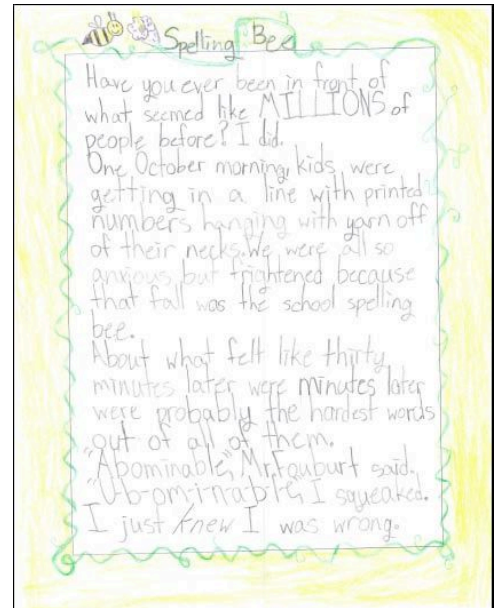 Spelling Bee
Have you ever been in front of
what seemed like MILLIONS of
people before? I did.
One October morning, kids were
getting in a line with printed
numbers hanging with yarn off
of their necks. We were all so
anxious but frightened because
that fall was the school spelling
bee.
About what felt like thirty
minutes later were minutes later
were probably the hardest words
out of all of them.
"Abominable," Mr. Fouburt said.
"U-b-om-i-na-b-l-e," I squeaked.
I just knew I was wrong.